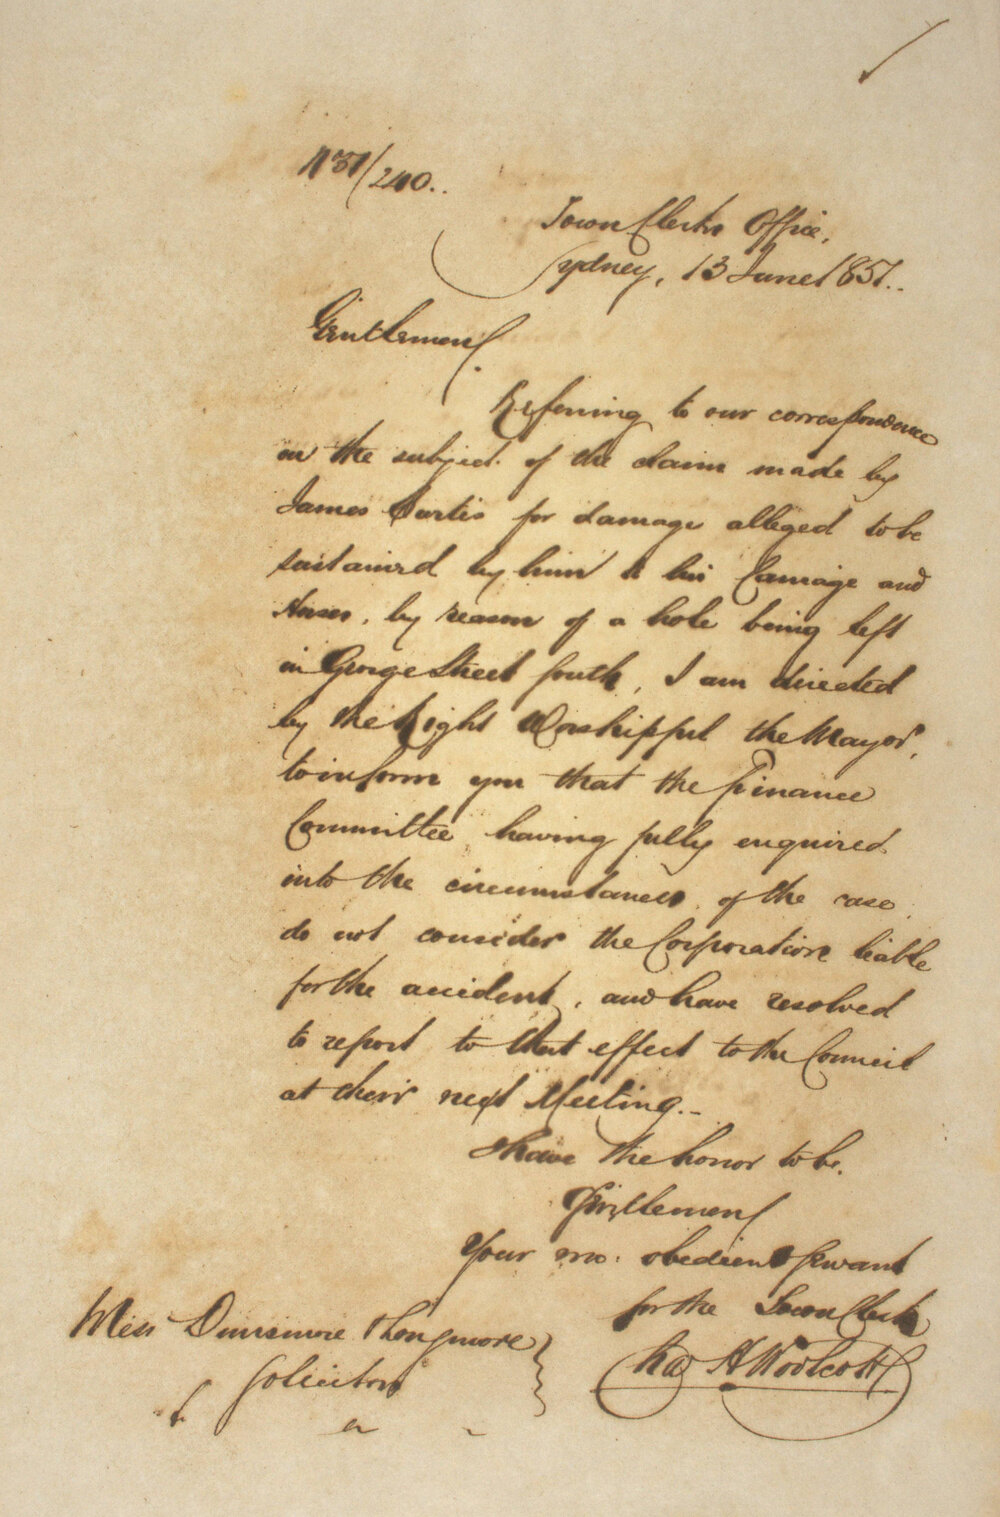 No 57/240..
Town Clerks Office,
Sydney, 13 June 1857..
Gentlemen,
Referring to our correspondence
on the subject of the claim made by
James Curtis for damage alleged to be
sustained by him to his Carriage and
Horses, by reason of a hole being left
in George Street South, I am directed
by the Right Worshipful the Mayor,
to inform you that the Finance
Committee having fully enquired
into the circumstances of the case
do not consider the Corporation liable
for the accident, and have resolved
to report to that effect to the Council
at their next Meeting.-
I have the honor to be.
Gentlemen
Your mo. obedient Servant
for the Town Clerk
Chas H Woolcott
Mess Dunsmure & Longmore
Solicitors